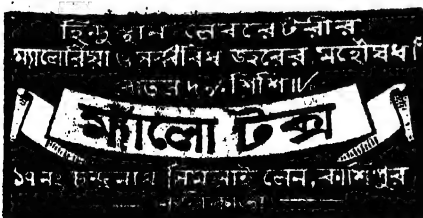 হিন্দুস্থান লেবরেটরীর
ম্যালেরিয়া ও সর্ব্ববিধ জ্বরের মহৌষধ
শিশি॥৵
ম্যালো টক্স
১৭নং চন্দ্রনাথ সিমলাই লেন, কাশিপুর